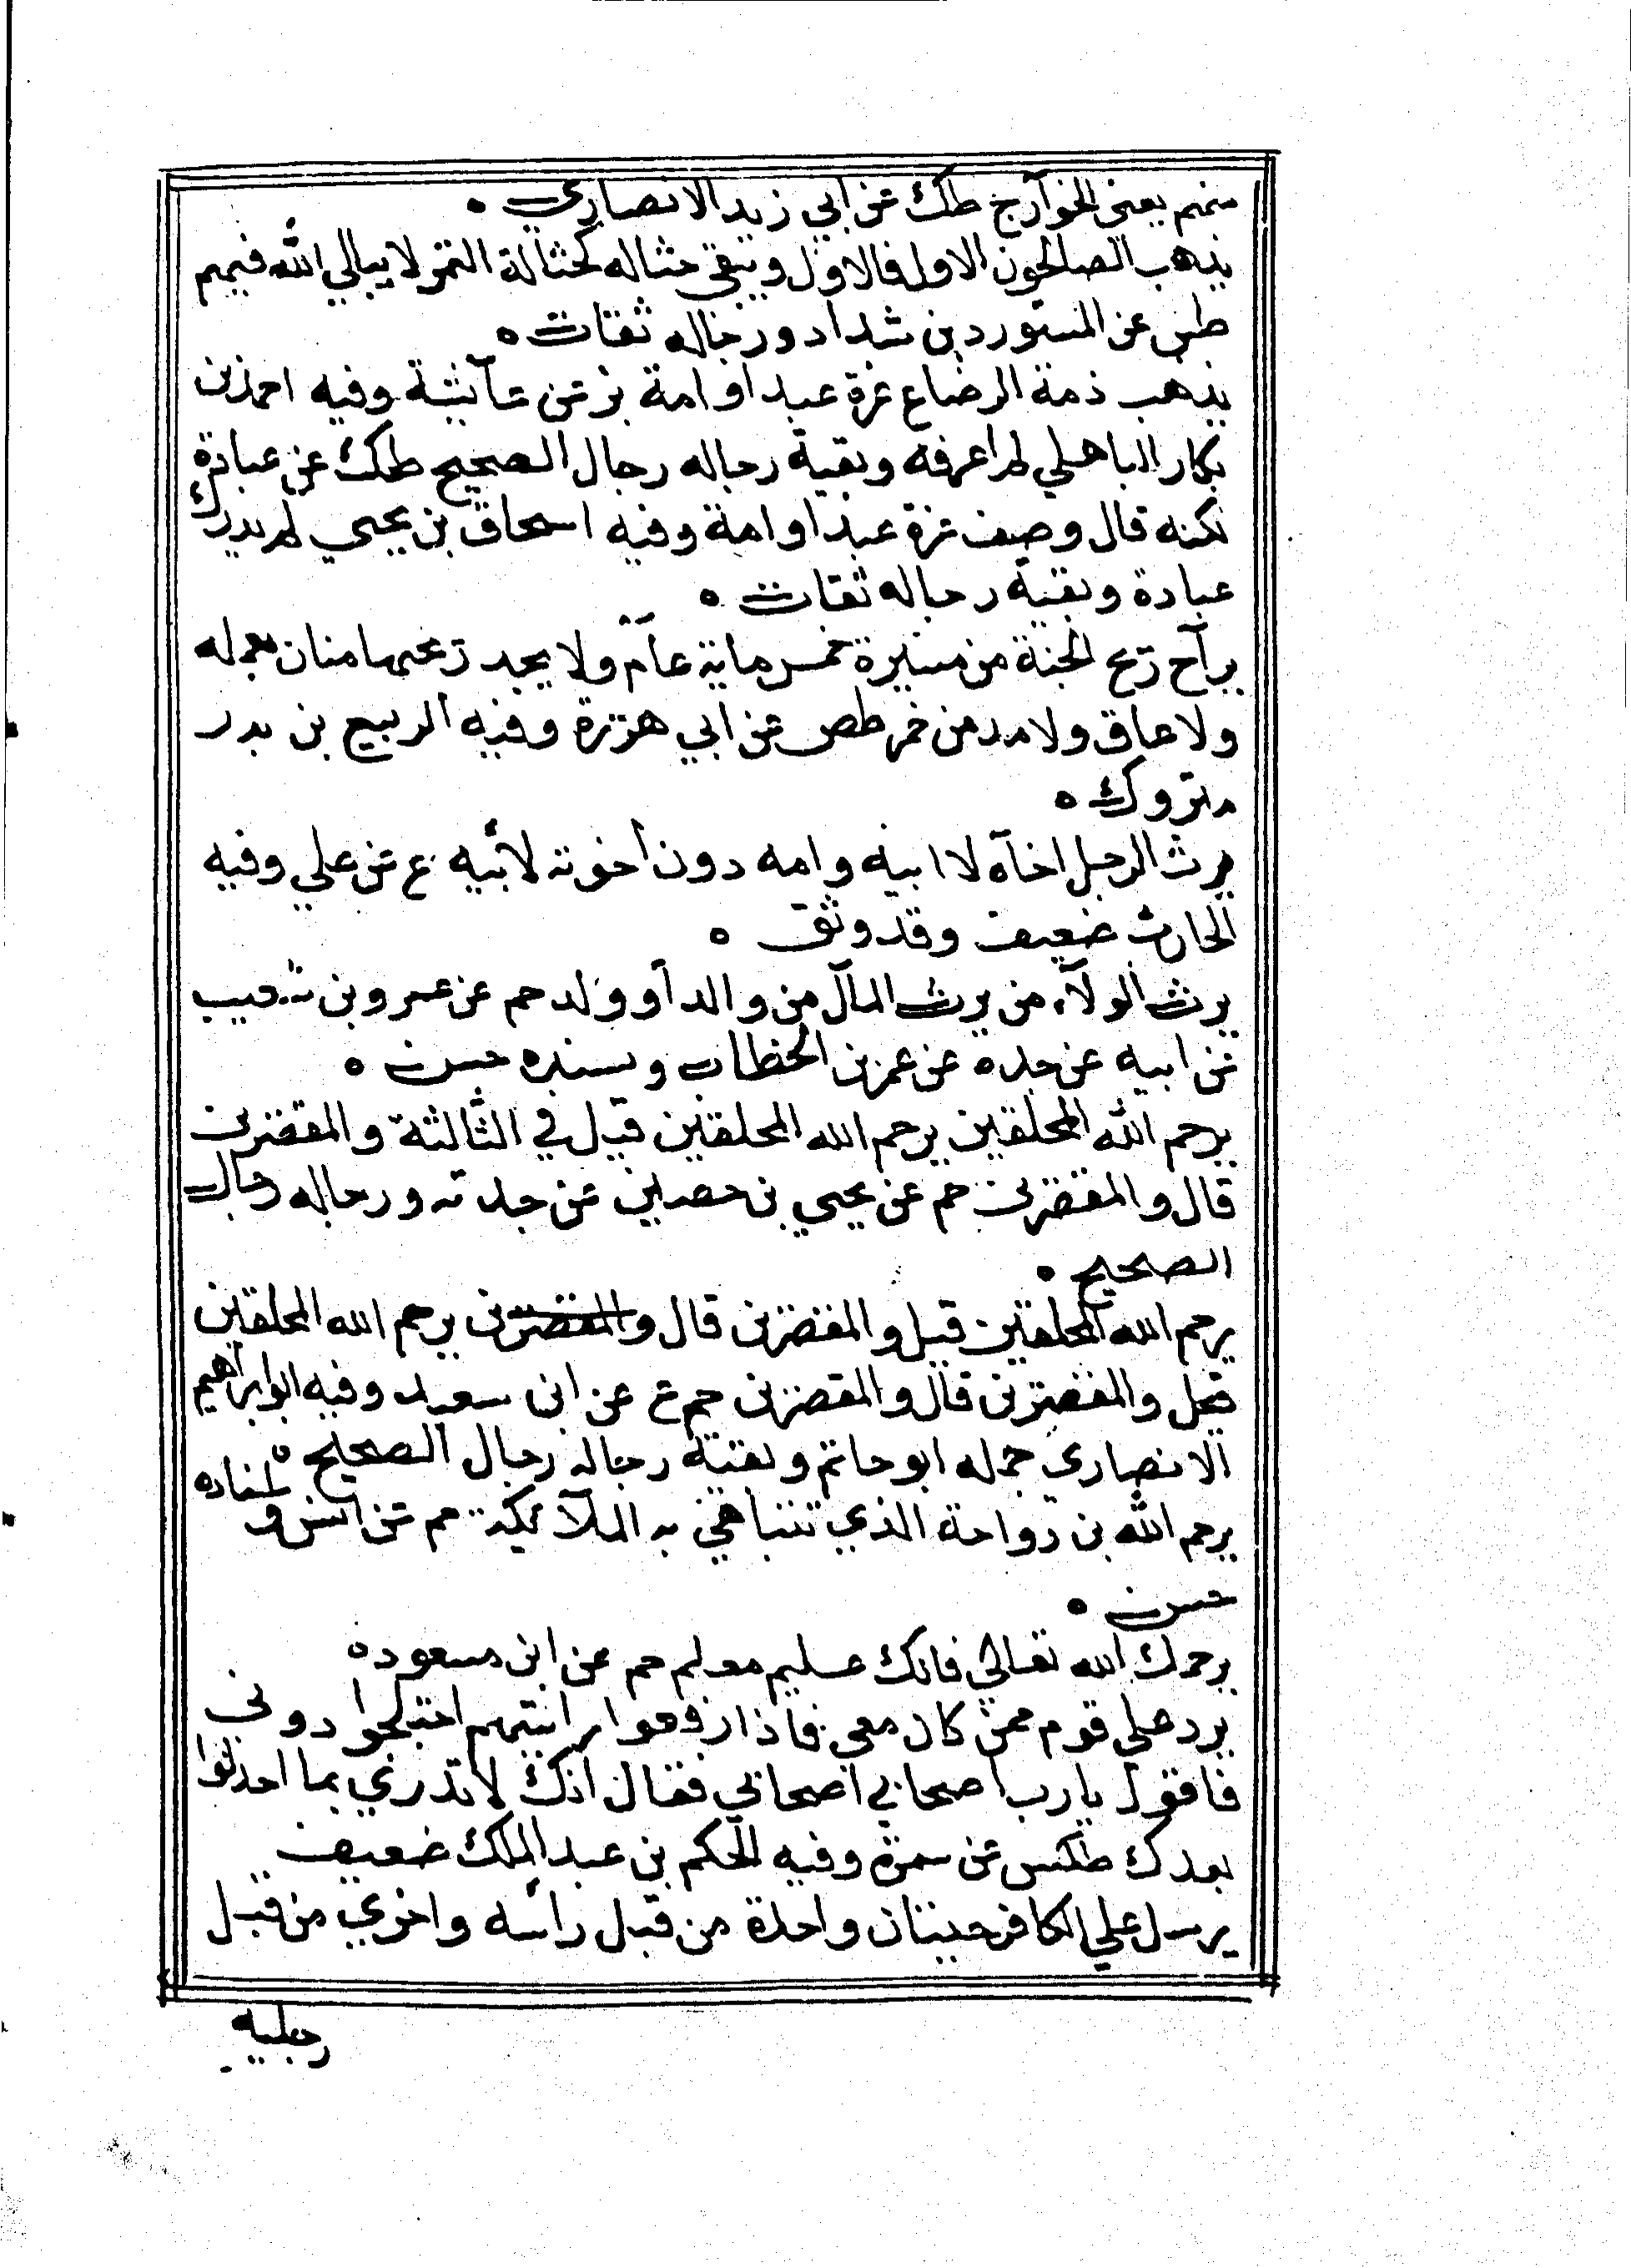 منهم يعني الخوارج طك عن ابي زيد الانصاري ه
يذهب الصالحون الاول فالاول ويبقى حثاله كحثالة التمر لا يبالي الله فيهم
طس عن المستورد بن شداد ورجاله ثقات ه
يذهب ذمة الرضاع غرة عبد او امة بز عن عآئشة وفيه احمد بن
بكار الباهلي لم اعرفه وبقية رجاله رجال الصحيح طك عن عبادة
لكنه قال وصيف غرة عبد او امة وفيه اسحاق بن يحيي لم يدرك
عبادة وبقية رجاله ثقات ه
يراح ريح الجنة من مسيرة خمس ماية عام ولا يجد ريحها منان بعمله
ولا عاق ولا مدمن خمر طص عن ابي هريرة وفيه الربيع بن بدر
متروك ه
يرث الرجل اخآه لا ابيه وامه دون اخوته لأبيه ع عن علي وفيه
الحارث ضعيف وقد وثق ه
يرث الولآء من يرث المآل من والد أو ولد حم عن عمرو بن شعيب
عن ابيه عن جده عن عمر بن الخطاب وسنده حسن ه
يرحم الله المحلقين يرحم الله المحلقين قيل في الثالثة والمقصرين
قال والمقصرين حم عن يحيي بن حصين عن جدته ورجاله رجال
الصحيح ه
يرحم الله المحلقين قيل والمقصرين قال والمقصرين يرحم الله المحلقين
قيل والمقصرين قال والمقصرين حم ع عن ابي سعيد وفيه ابو ابراهيم
الانصاري جهله ابو حاتم وبقية رجاله رجال الصحيح ه
يرحم الله بن رواحة الذي تتباهي به الملآئكة حم عن انس و اسناده
حسن ه
يرحمك الله تعالي فانك عليم معلم حم عن ابن مسعود ه
يرد علي قوم ممن كان معي فاذا رفعوا رايتهم اختلجوا دوني
فاقول يارب اصحابي اصحابي فقال انك لا تدري بما احدثوا
بعدك طكس عن سمرة وفيه الحكم بن عبد الملك ضعيف
يرسل علي الكافر حيتان واحدة من قبل رأسه واخري من قبل
رجليه